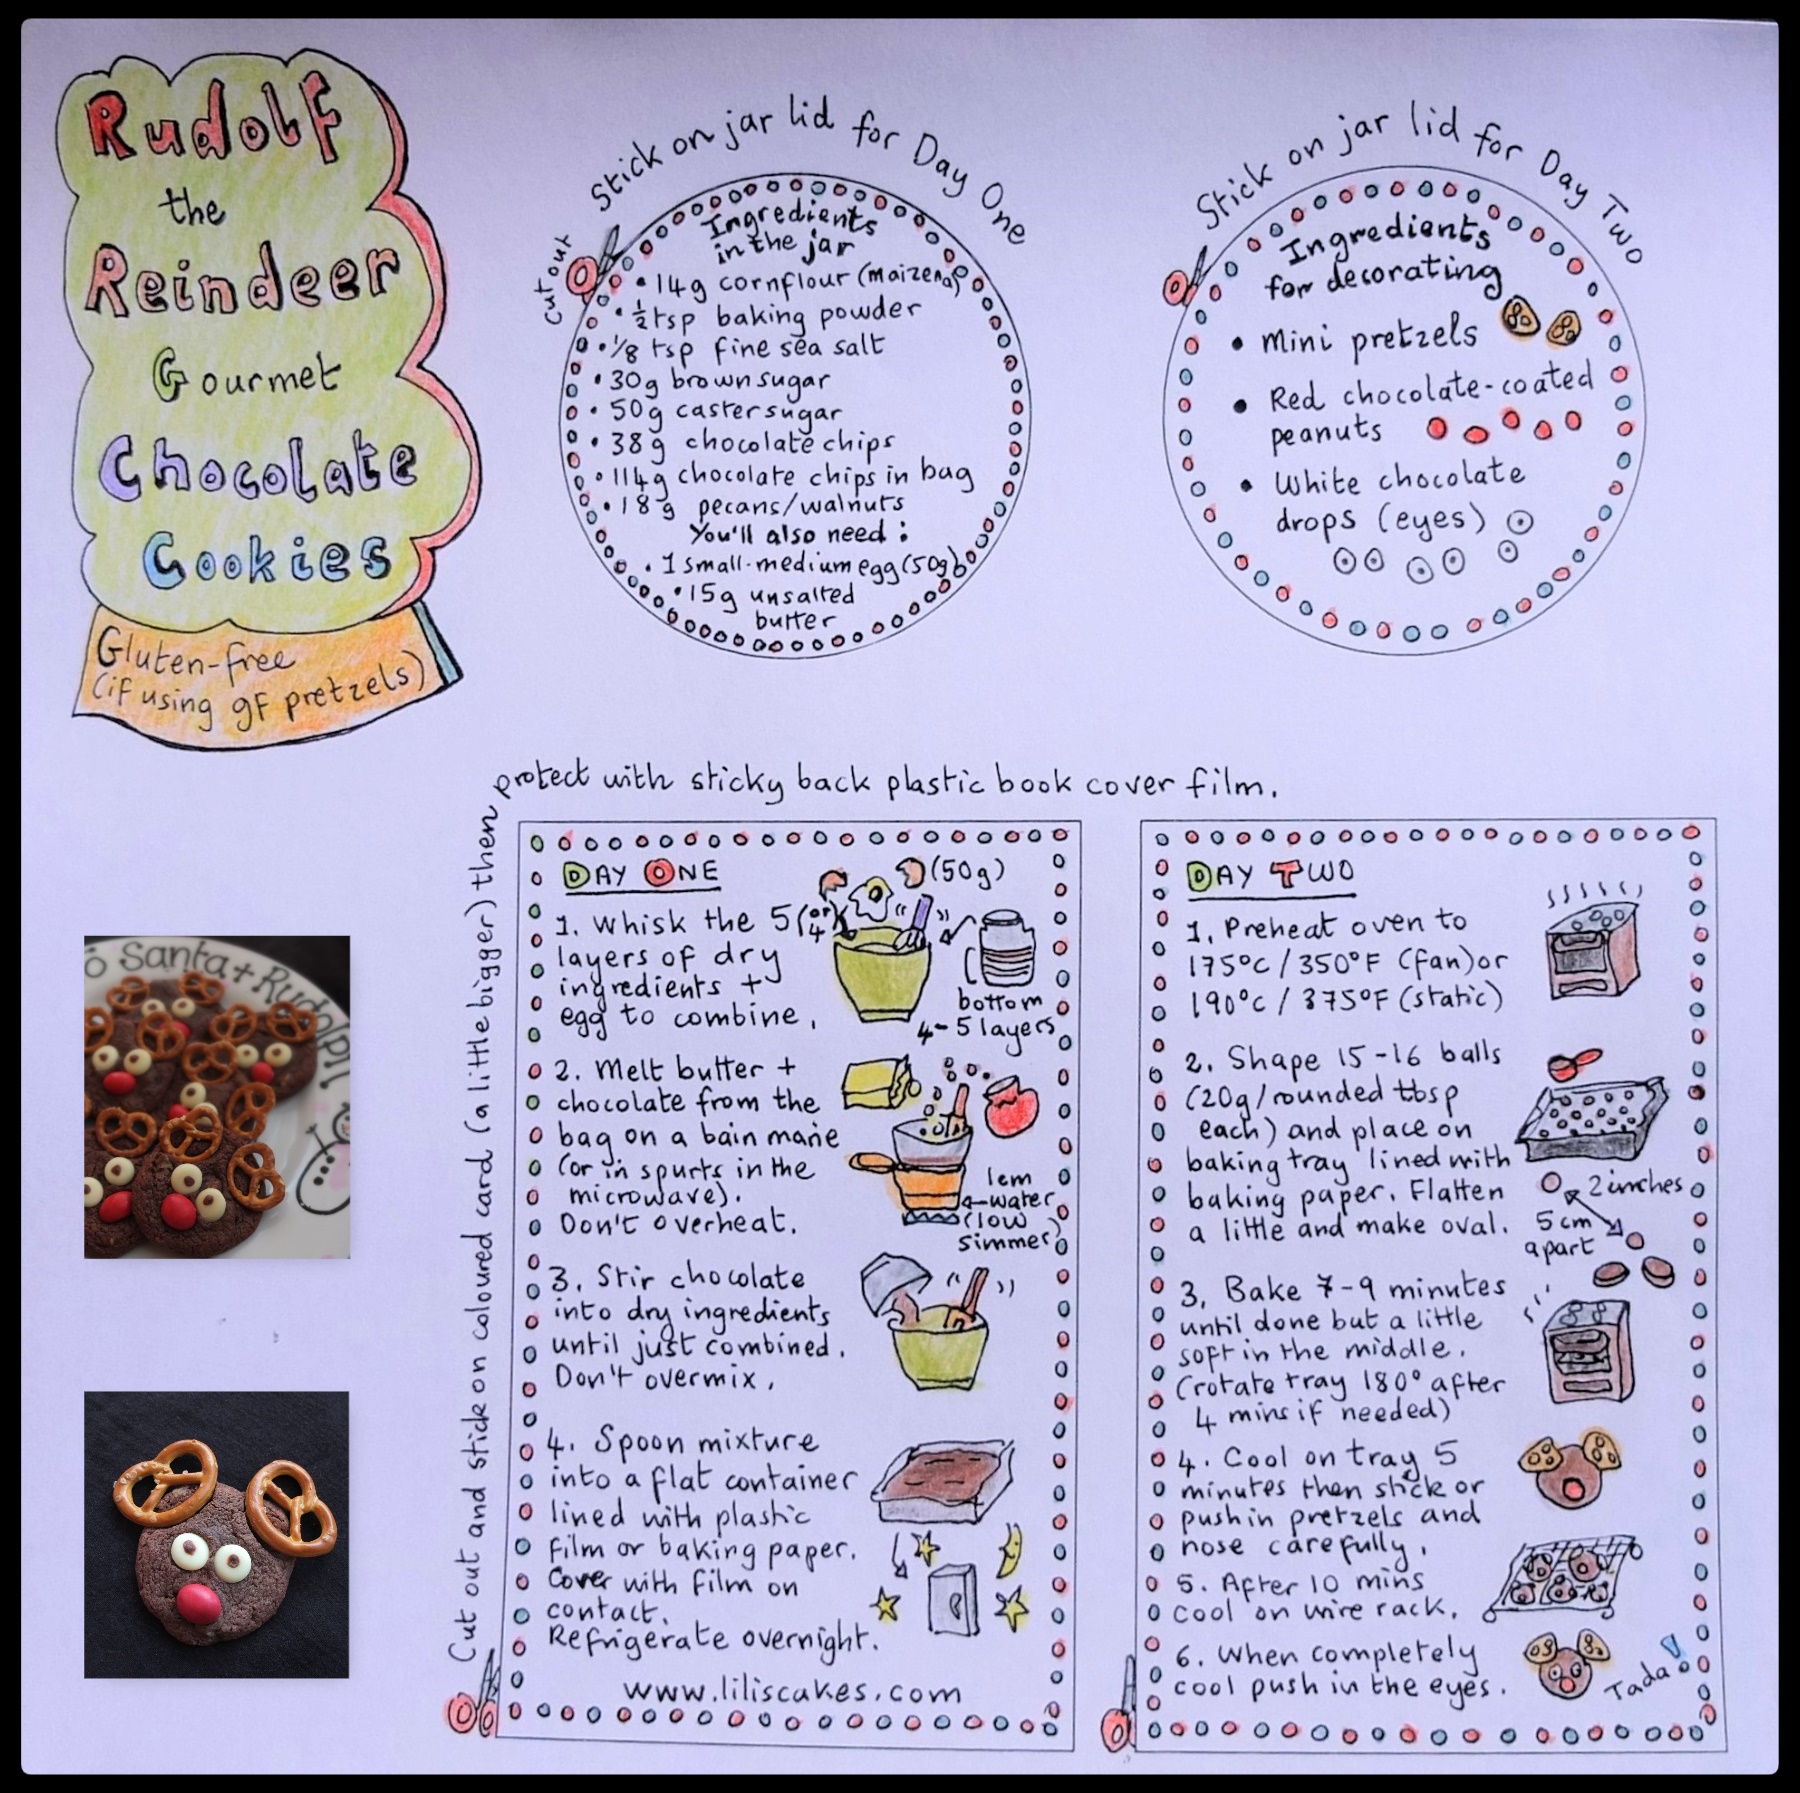 Rudolf
the
Reindeer
Gourmet
Chocolate
Cookies
Gluten-free
(if using gf pretzels)
Stick on jar lid for Day One
cut out
Ingredients
in the jar
• 14g cornflour (maizena)
• ½ tsp baking powder
• 1/8 tsp fine sea salt
• 30g brown sugar
• 50g caster sugar
• 38g chocolate chips
• 114g chocolate chips in bag
• 18g pecans/walnuts
You'll also need:
• 1 small-medium egg (50g)
• 15g unsalted
butter
Stick on jar lid for Day Two
Ingredients
for decorating
• Mini pretzels
• Red chocolate-coated
peanuts
• White chocolate
drops (eyes)
Cut out and stick on coloured card (a little bigger) then protect with sticky back plastic book cover film.
DAY ONE
(50g)
1. Whisk the 5 (or 4)
layers of dry
ingredients +
egg to combine.
bottom
4-5 layers
2. Melt butter +
chocolate from the
bag on a bain marie
(or in spurts in the
microwave).
Don't overheat.
1cm
water
(low
simmer)
3. Stir chocolate
into dry ingredients
until just combined.
Don't overmix.
4. Spoon mixture
into a flat container
lined with plastic
film or baking paper.
Cover with film on
contact.
Refrigerate overnight.
www.liliscakes.com
DAY TWO
1. Preheat oven to
175°C / 350°F (fan) or
190°C / 375°F (static)
2. Shape 15-16 balls
(20g/rounded tbsp
each) and place on
baking tray lined with
baking paper. Flatten
a little and make oval.
2 inches
5 cm
apart
3. Bake 7-9 minutes
until done but a little
soft in the middle.
(rotate tray 180° after
4 mins if needed)
4. Cool on tray 5
minutes then stick or
push in pretzels and
nose carefully.
5. After 10 mins
cool on wire rack.
6. When completely
cool push in the eyes.
Tada!
Santa + Rudolph!